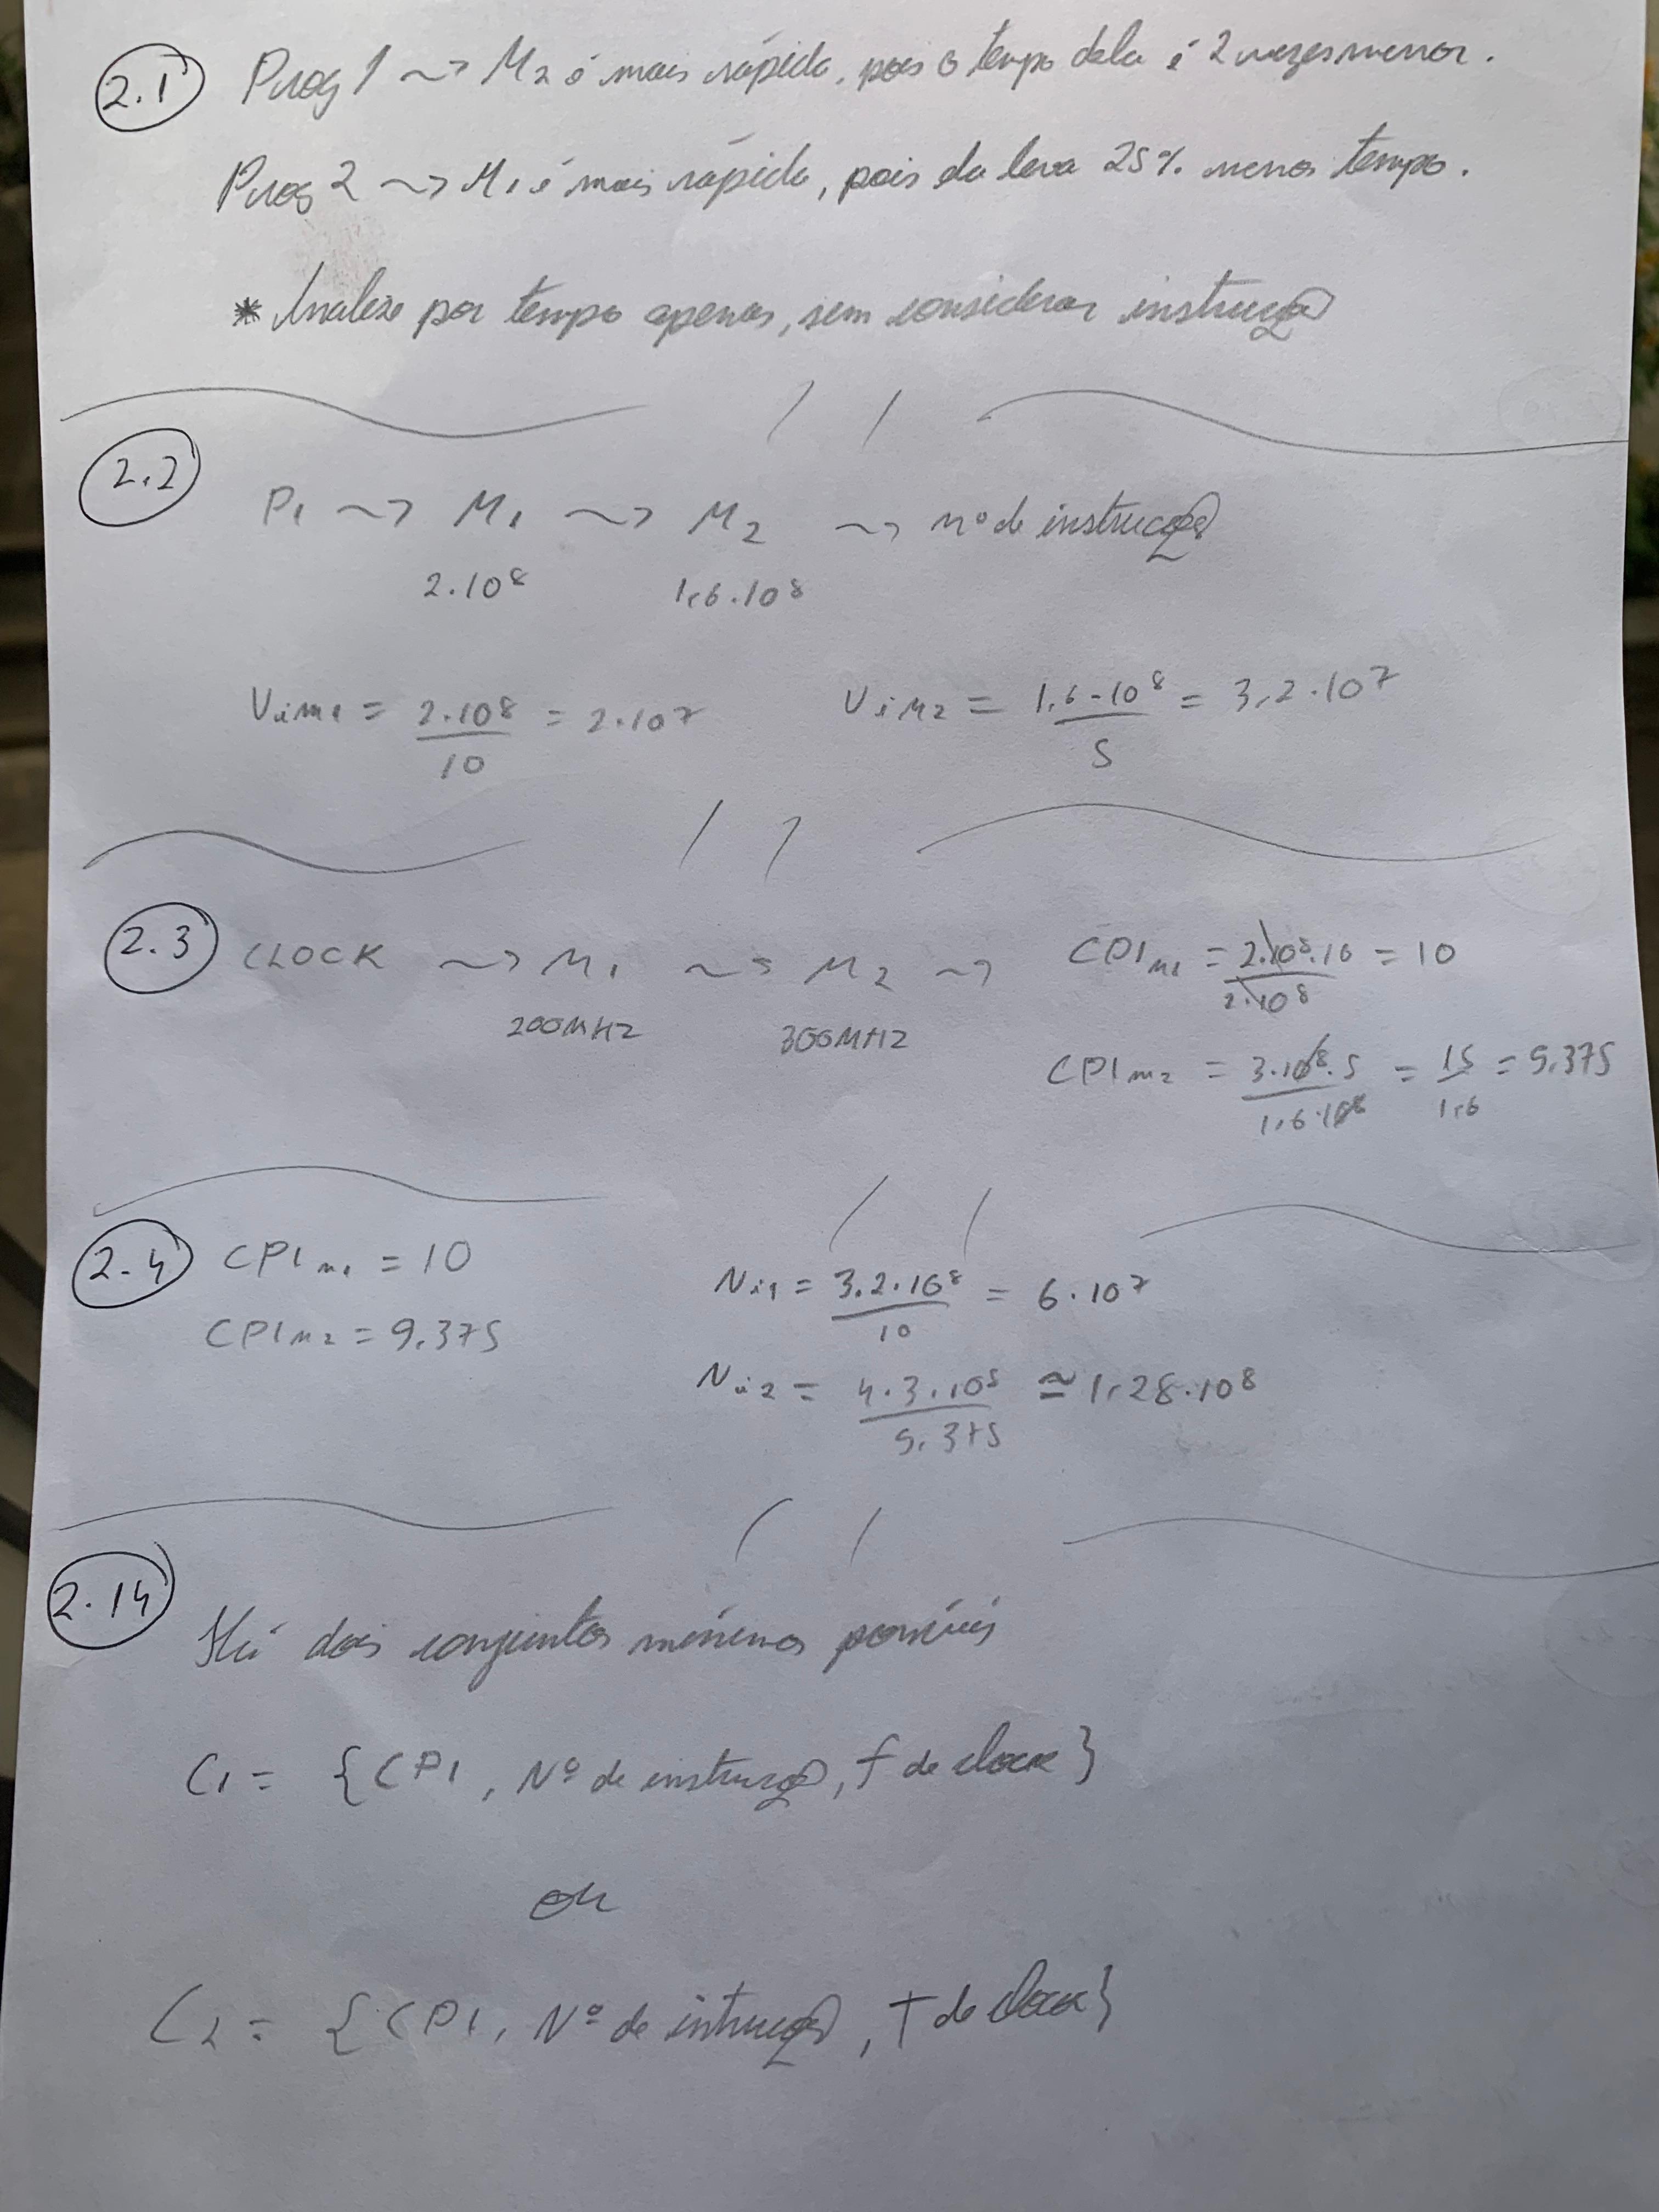 2.1 Prog 1 ~> M2 é mais rápida, pois o tempo dela é 2 vezes menor.
Prog 2 ~> M1 é mais rápida, pois ela leva 25% menos tempo.
* Analise por tempo apenas, sem considerar instrução
2.2 P1 ~> M1 ~> M2 ~> nº de instruções
2.10^8 1,6.10^8
ViM1 = 2.10^8/10 = 2.10^7 ViM2 = 1,6.10^8/5 = 3,2.10^7
2.3 CLOCK ~> M1 ~> M2 ~> CPI M1 = 2.10^8.10/2.10^8 = 10
200MHZ 300MHZ
CPI M2 = 3.10^8.5/1,6.10^8 = 15/1,6 = 9,375
2.4 CPI M1 = 10 Ni1 = 3.2.10^8/10 = 6.10^7
CPI M2 = 9,375
Ni2 = 4.3.10^8/9,375 ≅ 1,28.10^8
2.14 Há dois conjuntos mínimos possíveis
C1 = {CPI, Nº de instrução, f de clock}
ou
C2 = {CPI, Nº de intrução, T de clock}